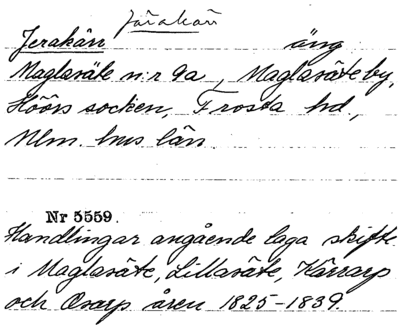 Järakån
Jerakån äng
Maglaräte n:r 9a, Maglaräte by,
Höörs socken, Frosta hd.,
Mlm. hus län
Nr 5559.
Handlingar angående laga skifte
i Maglaräte, Lillaräte, Kärrarp
och Ararp åren 1825-1839